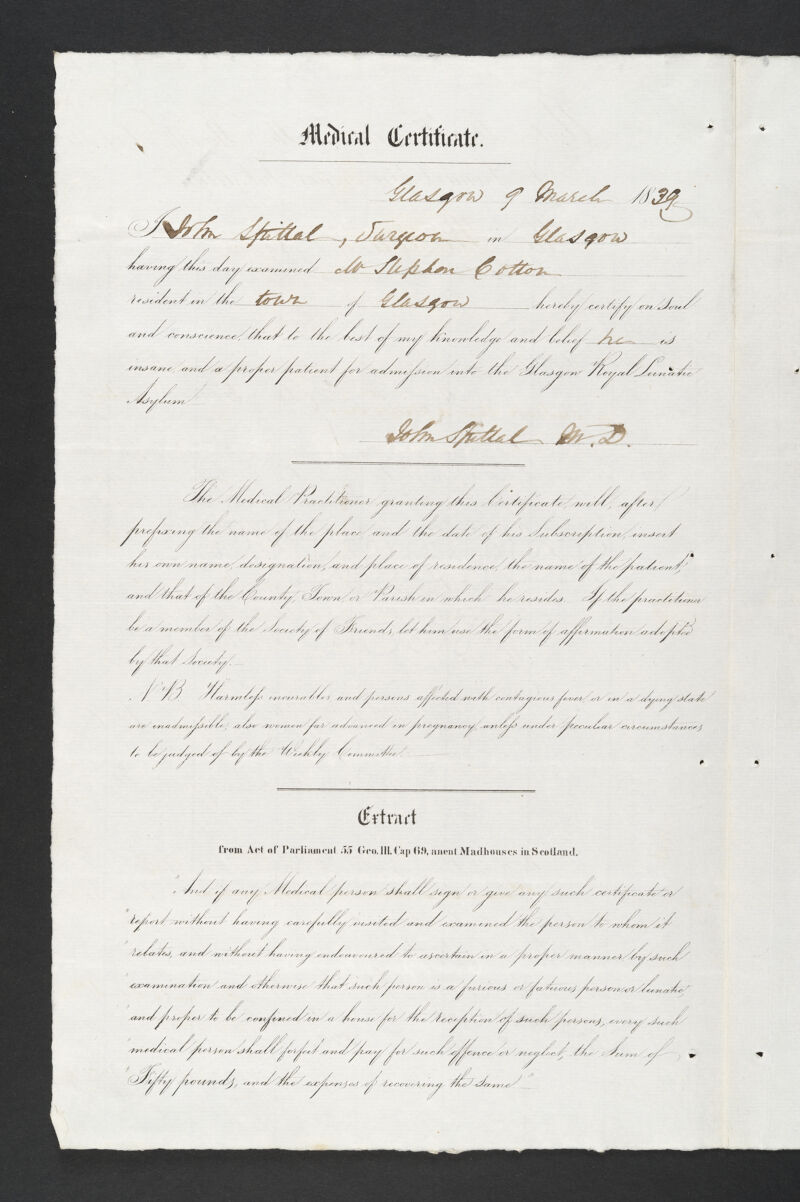 Medical Certificate.
Glasgow 9 March 1839
I John Spittal, Surgeon in Glasgow
having this day examined Mr Stephen Cotton
resident in the town of Glasgow hereby certify on soul
and conscience, that to the best of my knowledge and belief he is
insane, and a proper patient for admission into the Glasgow Royal Lunatic
Asylum
John Spittal M.D.
The Medical Practitioner granting this Certificate, will, after
prefixing the name of the place and the date of his Subscription, insert
his own name, designation, and place of residence, the name of the patient,
and that of the County, Town, or Parish in which he resides. If the practitioner
be a member of the Society of Friends, let him use the form of affirmation adopted
by that Society.
N.B. Harmless incurables and persons affected with contagious fever or in a dying state
are inadmissible, also women far advanced in pregnancy, unless under peculiar circumstances
to be judged of by the Weekly Committee.
Extract
from Act of Parliament 55 Geo. III. Cap 69, anent Madhouses in Scotland.
"And if any Medical person shall sign or give any such certificate or
"report without having carefully visited and examined the person to whom it
"relates, and without having endeavoured to ascertain in a proper manner by such
"examination and otherwise that such person is a furious or fatuous person or lunatic,
"and proper to be confined in a house for the reception of such persons, every such
"medical person shall forfeit and pay for such offence or neglect, the sum of
"Fifty pounds, and the expenses of recovering the same"